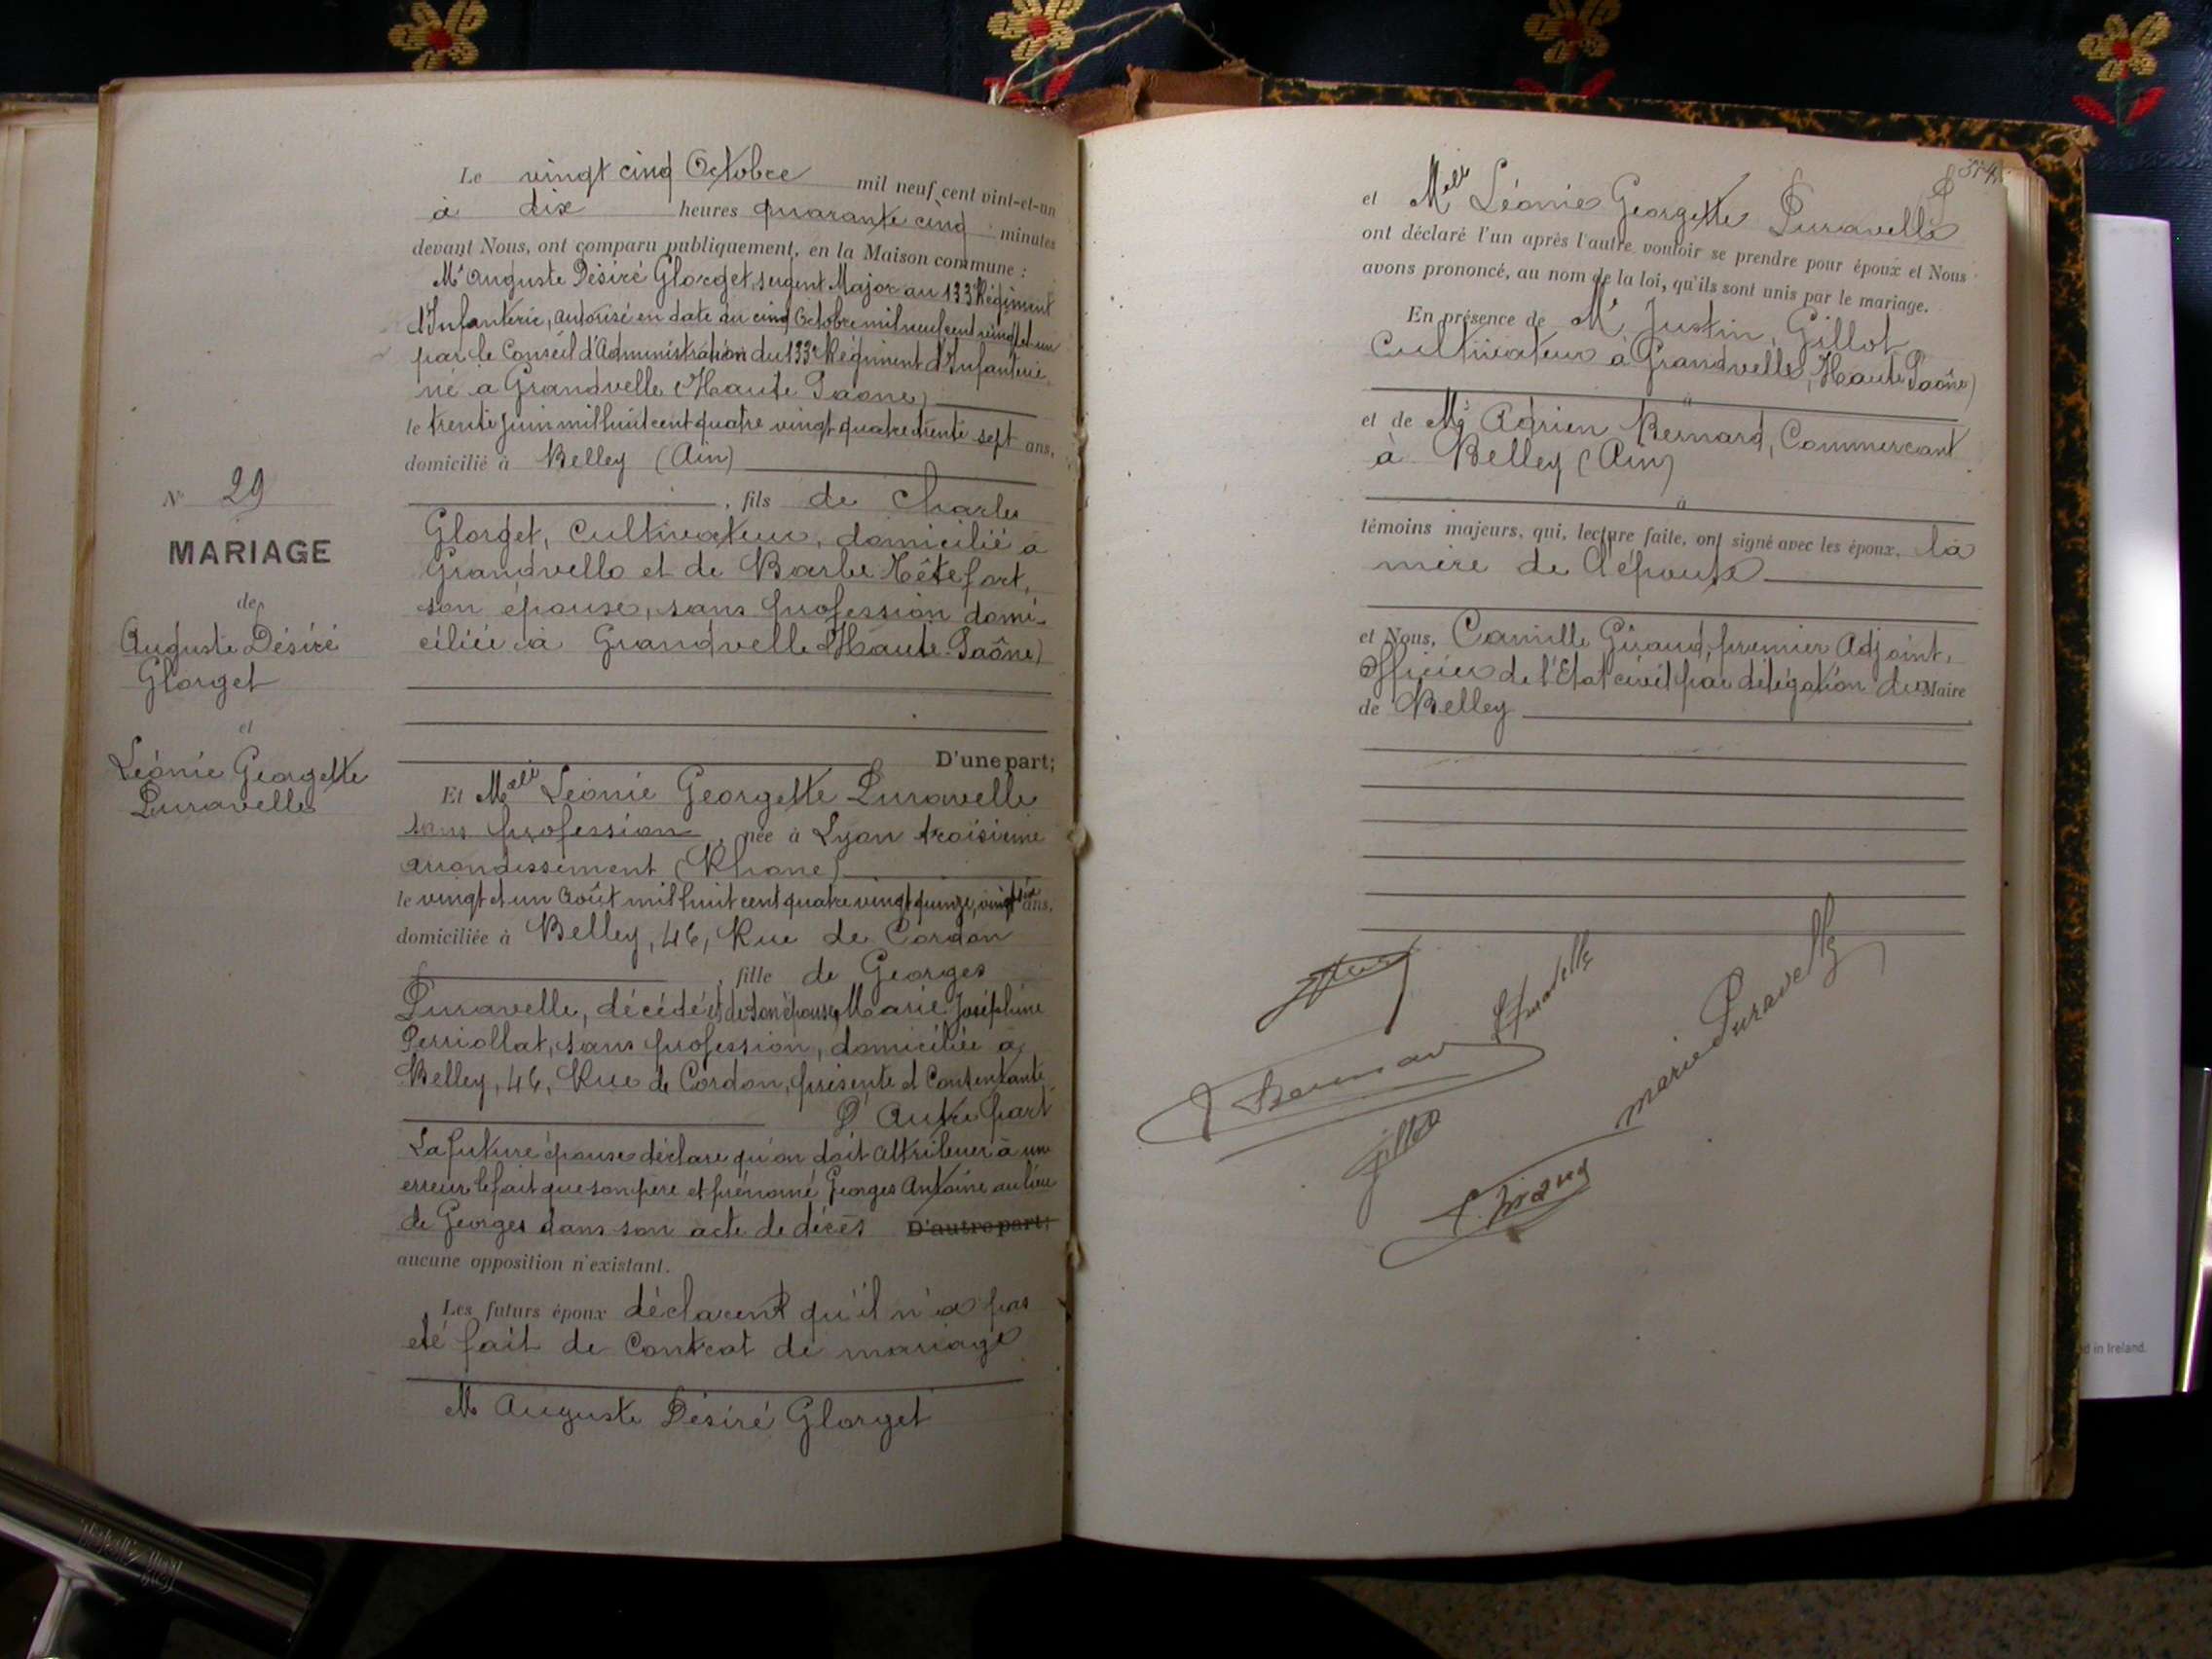 Le vingt cinq Octobre mil neuf cent vint-et-un
à dix heures quarante cinq minutes
devant Nous, ont comparu publiquement, en la Maison commune :
Mr Auguste Désiré Glorget, sergent Major au 133e Régiment
d'Infanterie, autorisé en date du cinq Octobre mil neuf cent vingt et un
par le Conseil d'Administration du 133e Régiment d'Infanterie
né à Grandvelle (Haute Saone)
le trente juin mil huit cent quatre vingt quatre trente sept ans,
domicilié à Belley (Ain)
, fils de Charles
Glorget, Cultivateur, domicilié à
Grandvelle et de Barbe Têtefort,
son épouse, sans profession domi-
ciliée à Grandvelle (Haute Saône)
D'une part;
N° 29
MARIAGE
de
Auguste Désiré
Glorget
et
Léonie Georgette
Puravelle
Et Melle Léonie Georgette Puravelle
sans profession, née à Lyon troisième
arrondissement (Rhone)
le vingt et un Août mil huit cent quatre vingt quinze, vingt six ans,
domiciliée à Belley, 46, Rue de Cordon
, fille de Georges
Puravelle, décédé et de son épouse Marie Joséphine
Perriollat, sans profession, domiciliée à
Belley, 46, Rue de Cordon, présente et Consentante
D'Autre part
La future épouse déclare qu'on doit attribuer à une
erreur le fait que son père est prénomé Georges Antoine au lieu
de Georges dans son acte de décès D'autre part;
aucune opposition n'existant.
Les futurs époux déclarent qu'il n'a pas
été fait de Contrat de mariage
Mr Auguste Désiré Glorget
374
et Melle Léonie Georgette Puravelle
ont déclaré l'un après l'autre vouloir se prendre pour époux et Nous
avons prononcé, au nom de la loi, qu'ils sont unis par le mariage.
En présence de Mr Justin, Gillot
Cultivateur à Grandvelle, (Haute Saône)
et de Mr Adrien Bernard, Commercant
à Belley (Ain)
témoins majeurs, qui, lecture faite, ont signé avec les époux, la
mère de l'épouse
et Nous, Camille Giraud, premier Adjoint,
Officier de l'Etat civil par délégation du Maire
de Belley
Puravelle
marie Puravelle
Bernard
Gillot
C. Giraud
d in Ireland.